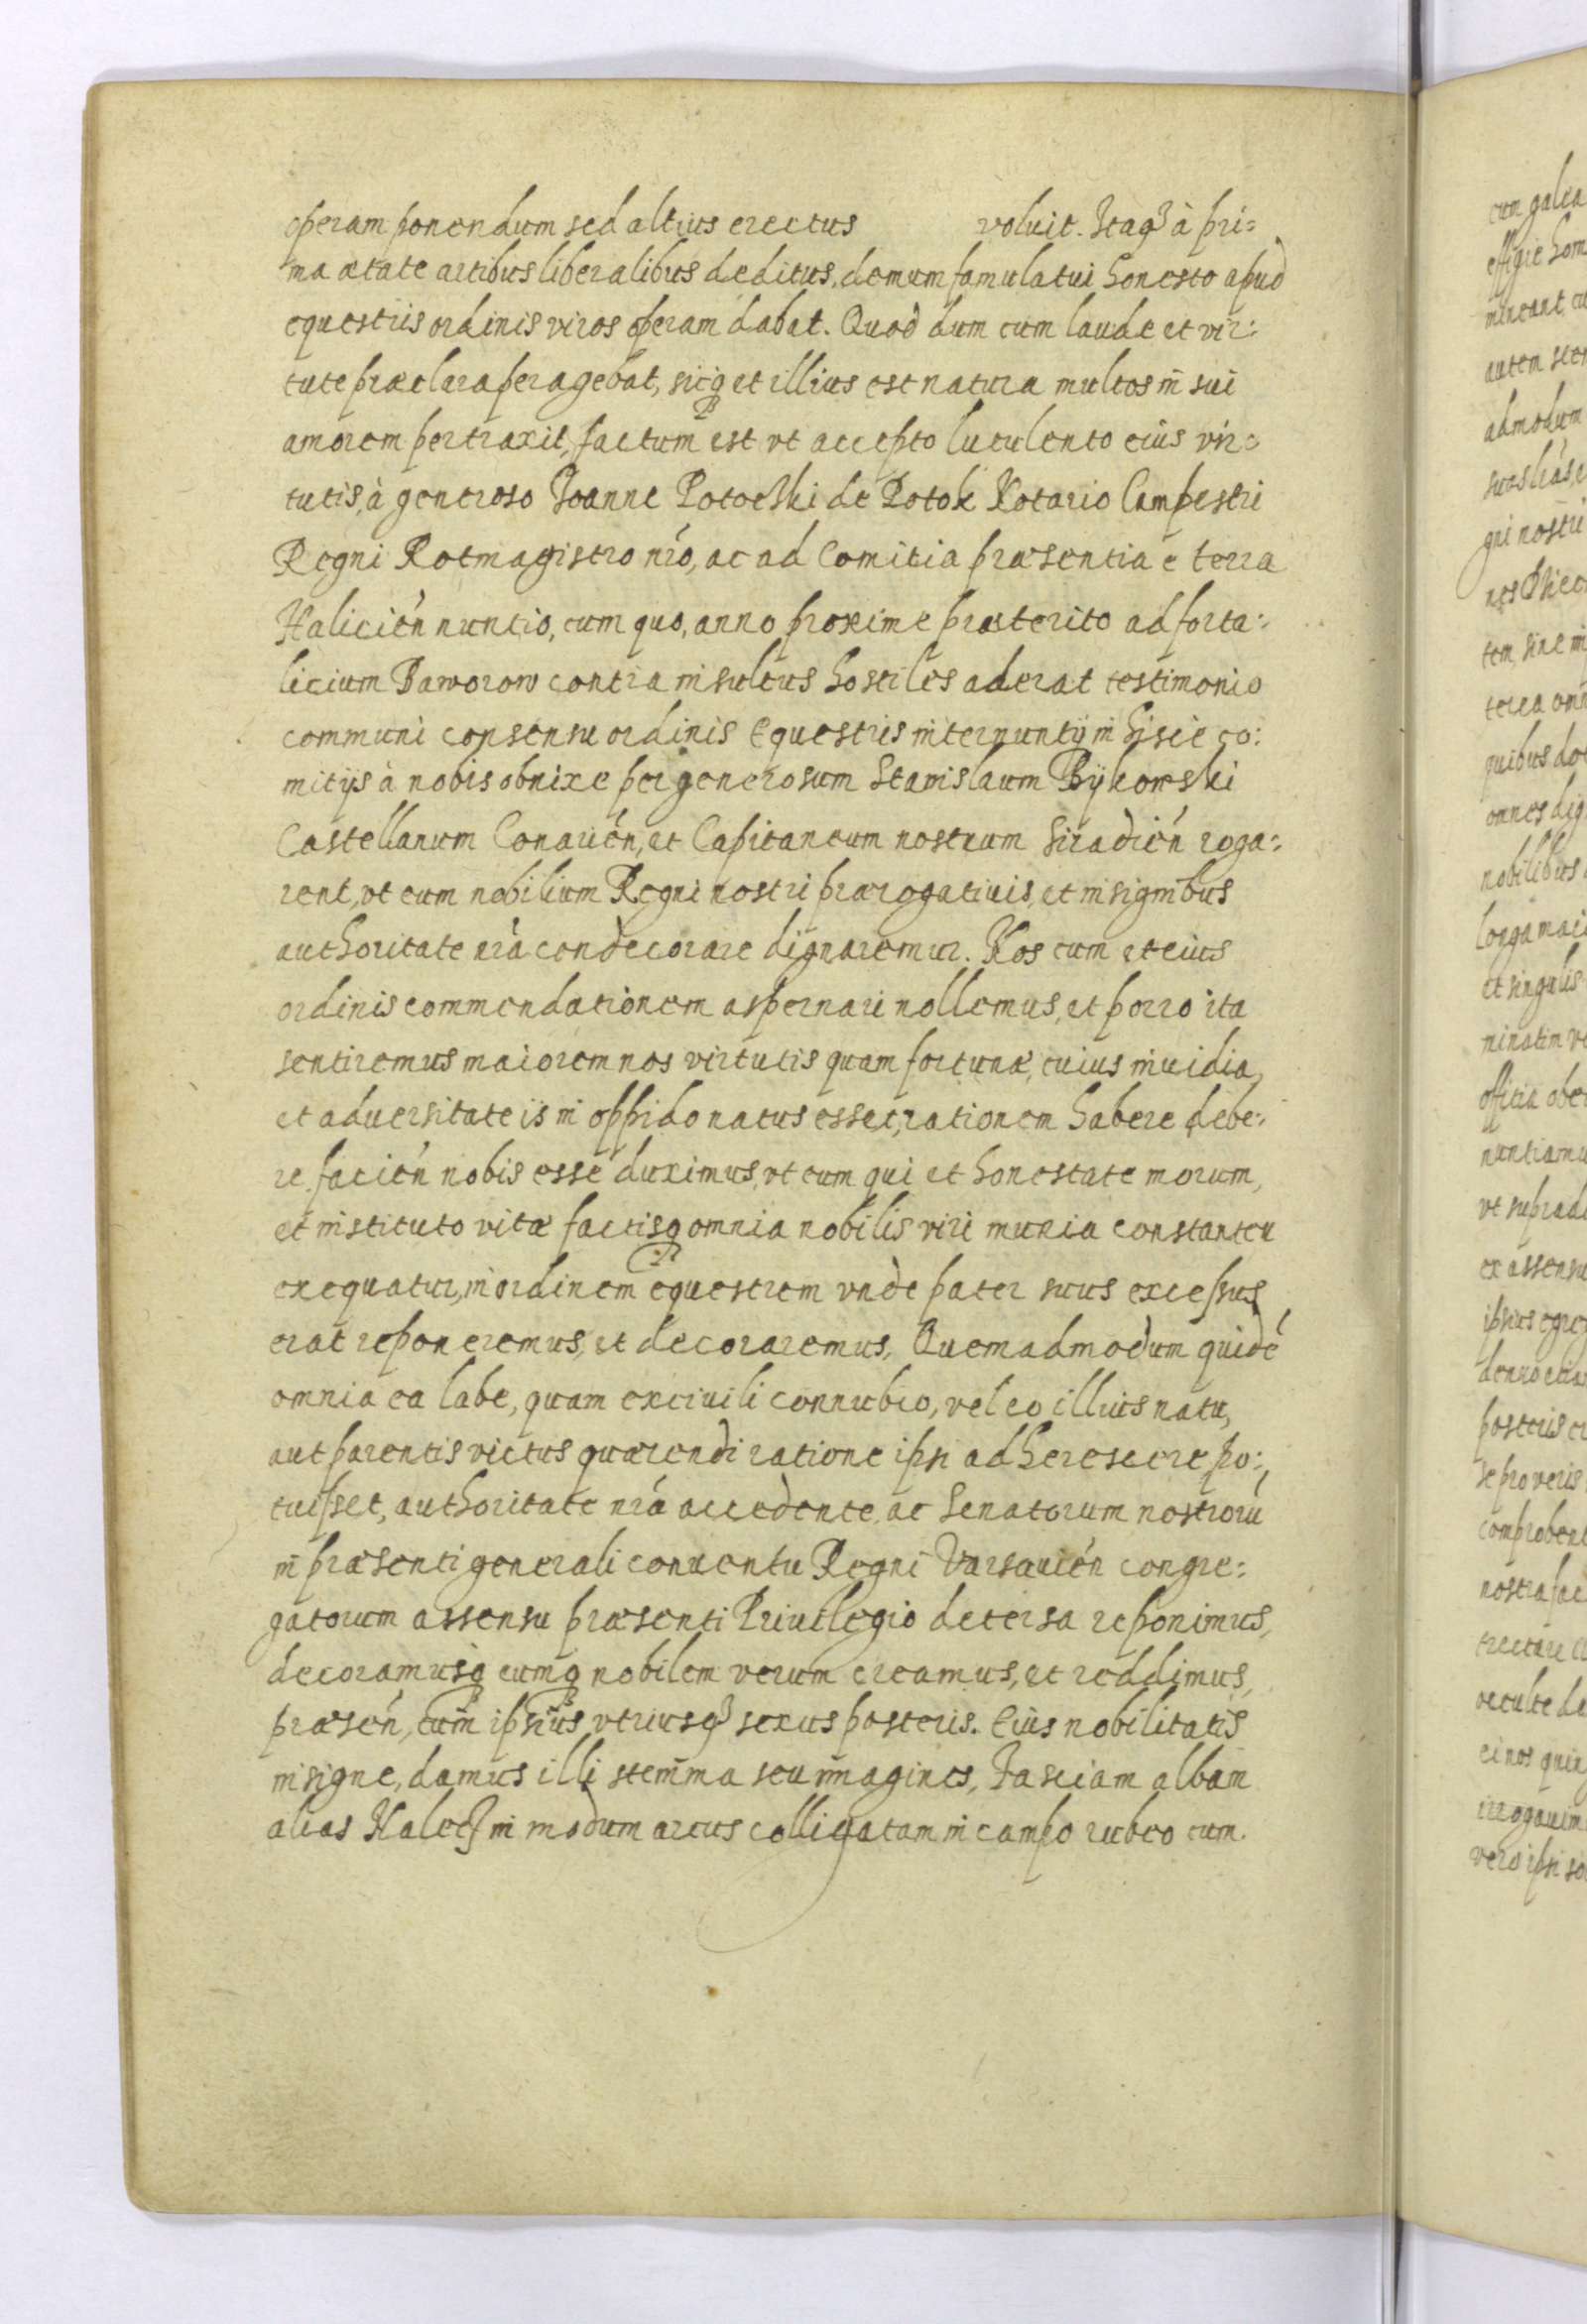 operam ponendum sed altius erectus voluit. Itaq3 à pri=
ma ætate artibus liberalibus deditus, demum famulatui honesto apud
equestris ordinis viros operam dabat. Quod dum cum laude et vir=
tute præclara peragebat, sicq et illius est natura multos in̄ sui
amorem pertraxit, factum est vt accepto luculento eius vir=
tutis, à generoso Joanne Potocski de Potok Notario Campestri
Regni Rotmagistro nr̃o, ac ad Comitia præsentia è terra
Halicień nuntio, cum quo, anno proxime præterito ad forta=
licium Jaworow contra insultus hostiles aderat testimonio
communi consensu ordinis Equestris internuntij in hisce co=
mitijs à nobis obnixe per generosum Stanislaum Bÿkowski
Castellanum Conarień, et Capitaneum nostrum Siradień roga=
rent, vt eum nobilium Regni nostri prærogatiuis, et insignibus
authoritate nr̃a condecorare dignaremur. Nos cum et eius
ordinis commendationem aspernari nollemus, et porro ita
sentiremus maiorem nos virtutis quam fortunæ, cuius inuidia,
et aduersitate is in oppido natus esset, rationem habere debe=
re, facień nobis esse duximus, vt eum qui et honestate morum,
et instituto vitæ factisq omnia nobilis viri munia constanter
exequatur, in ordinem equestrem vnde pater suus excessus
erat reponeremus, et decoraremus, Quemadmodum quidē
omnia ea labe, quam exciuili connubio, vel eo illius natu,
aut parentis victus quærendi ratione ipsi adherescere po=
tuisset, authoritate nr̃a accedente, ac Senatorum nostrorū
in̄ præsenti generali conuentu Regni Varsauień congre=
gatorum assensu præsenti Priuilegio detersa reponimus,
decoramusq eumq nobilem verum creamus, et reddimus,
præseń, cum̄ ipsius vtriusq3 sexus posteris. Eius nobilitatis
insigne, damus illi stem̄ma seu im̄agines, Fasciam albam
alias Nalecz in modum arcus colligatam in campo rubeo cum.